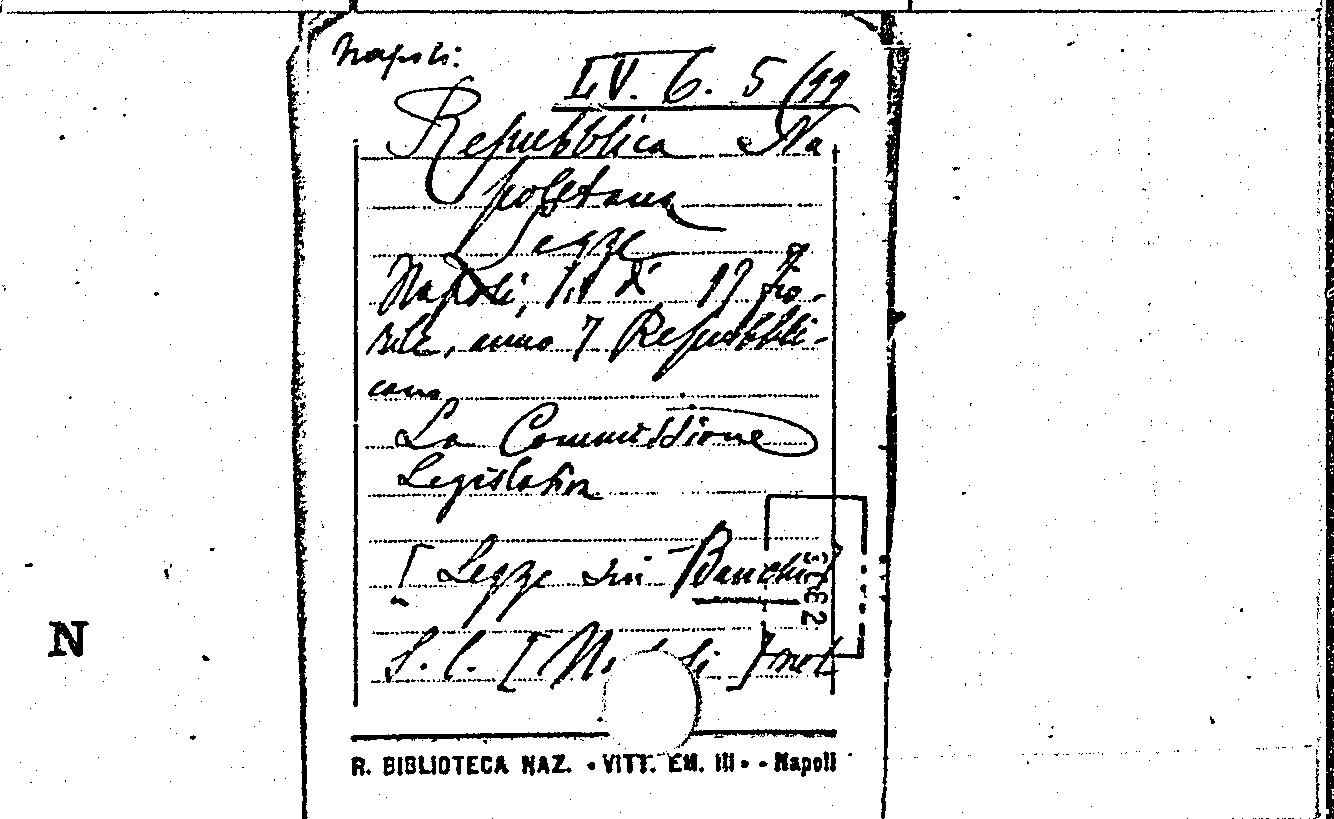 Napoli.
LV. 6. 5/99
Repubblica Na
poletana
Legge
Napoli, 19 fio-
rile, anno 7 Repubbli-
cano
La Commissione
Legislativa
[Legge sui Banchi]
S. l. [N. li] nel
N
R. BIBLIOTECA NAZ. • VITT. EM. III • - Napoli